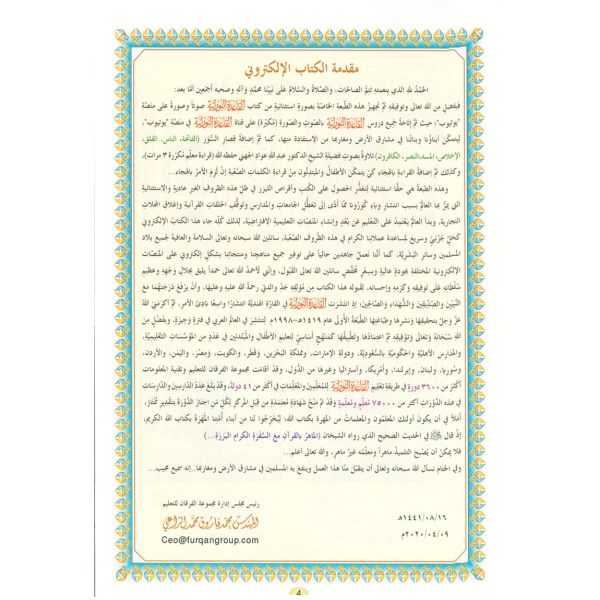 مقدمة الكتاب الإلكتروني
الحَمْدُ للهِ الذي بنعمتِهِ تتِمُّ الصالحَات، والصَّلاةُ والسَّلامُ عَلى نَبِيِّنَا محمّدٍ وَآلِهِ وصحبِهِ أجمَعين أمَّا بعد:
فبِفضلٍ من اللهِ تعالى وتوفيقِهِ تمَّ تجهيزُ هذه الطَّبعة الخاصّة بصورةٍ استثنائيةٍ من كتاب القاعدة النورانية صوتاً وصورةً على منصَّة
"يوتيوب"، حيث تمَّ إتاحةُ جميعِ دروسِ القاعدة النورانية بالصوتِ والصورةِ (مُكرَّرة) على قناة القاعدة النورانية في منصّة "يوتيوب"،
ليتمكَّنَ أبناؤنا وبناتُنا في مشارقِ الأرضِ ومغارِبِها من الاستفادة منها، كما تمَّ إضافةُ قِصارِ السُّوَرِ (الفاتحة، الناس، الفلق،
الإخلاص، المسد، النصر، الكافرون) تلاوةً بصوتِ فضيلةِ الشيخِ الدكتور عبد الله عواد الجهني حفظه الله (قراءة معلّم مكررة ٣ مرات)،
وكذلك تمَّ إضافةُ القراءةِ بالهجاءِ، كيْ يتمكّنَ الأطفالُ والمبتدئون مِنْ قراءةِ الكلماتِ الصعبةِ إنْ لَزِمَ الأمرُ بالهجاء.
وهذه الطبعةُ هي حقًّا استثنائية لِتعذُّر الحصولِ على الكُتُبِ وأقراصِ الليزر في ظلّ هذه الظروفِ الغيرِ عاديةٍ والاستثنائيةِ
التي يَمُرُّ بها العالمُ بسببِ انتشارِ وباءِ كورونا ممّا أدّى إلى تعطُّلِ الجامعاتِ والمدارسِ وتوقُّفِ الحلقاتِ القرآنيةِ وإغلاقِ المحلاتِ
التجارية، وبدأَ العالمُ يعتمدُ على التعليمِ عن بُعْدٍ وإنشاءِ المنصّاتِ التعليميةِ الافتراضيّةِ، لذلك كُلِّهِ جاء هذا الكتابُ الإلكتروني
كحلٍّ جُزْئيٍّ وسريعٍ لمساعدةِ عملائِنا الكرامِ في هذه الظروفِ الصعبةِ، سائلين الله سبحانه وتعالى السلامةَ والعافيةَ لجميعِ بلادِ
المسلمين وسائرِ البشريّة، كما أنَّنا نعملُ جاهدين حالياً على توفيرِ جميعِ مناهجِنا ومنتجاتِنا بشكلٍ إلكتروني على المنصّاتِ
الإلكترونيةِ المختلفةِ بجودةٍ عاليةٍ وبسعرٍ مُخَفَّضٍ سائلين الله تعالى القَبول، وإنِّي لأحمدُ اللهَ تعالى حمداً يليقُ بجلالِ وجهِهِ وعظيمِ
سلطانِهِ على توفيقِهِ وكرمِهِ وإحسانِه، لقبولِهِ هذا الكتابَ مِن مؤلِّفِهِ جَدِّي والدي رحمةُ اللهِ عليه وعليها، وأنْ يرفعَ درجتَهُما معَ
النَّبِيِّين والصِّدِّيقين والشُّهداءِ والصَّالحين؛ إذ انتشرت القاعدة النورانية في القارّةِ الهنديّةِ انتشاراً واسعًا بادئ الأمرِ، ثمَّ أكرمني اللهُ
عزَّ وجلَّ بتحقيقِها ونشرِها وطباعتِها الطبعةَ الأولى عام ١٤١٩هـ-١٩٩٨م لتنتشرَ في العالمِ العربي في فترةٍ وجيزةٍ، وبفضلٍ من
الله سبحانه وتعالى وتوفيقِهِ تمَّ اعتمادُها وتطبيقُها كمنهجٍ أساسيٍّ لتعليمِ الأطفالِ والمبتدئين في عددٍ من المؤسساتِ التعليميّةِ،
والمدارسِ الأهليةِ والحكوميةِ بالسعوديةِ، ودولةِ الإمارات، ومملكةِ البحرين، وقطر، والكويت، ومصر، واليمن، والأردن،
وسوريا، ولبنان، وإيرلندا، أمريكا، وأستراليا وغيرِها من الدُّوَل. وقدْ أقامتْ مجموعةُ الفرقان للتعليم وتقنية المعلومات
أكثر من ٣٦٠٠ دورة في طريقة تعليم القاعدة النورانية للمُعلِّمين والمعلِّمات في أكثر من ٤١ دولة، وقدْ بلغَ عددُ الدارسين والدارسات
في هذه الدَّوْراتِ أكثر من ٧٥٠٠٠ معلّم ومعلّمة وقدْ تمَّ منحُ شهادةٍ مُعتمدةٍ من قِبَلِ المركزِ لكلِّ مَن اجتازَ الدورةَ بتقديرِ ممتاز،
أملاً في أن يكونَ أولئك المعلّمون والمعلّمات من المهَرةِ بكتابِ الله؛ ليُخَرِّجوا لنا من أبناءِ أمّتِنا المهَرةَ بكتابِ اللهِ الكريم.
إذ قال ﷺ في الحديثِ الصحيحِ الذي رواه الشيخان (الماهرُ بالقرآنِ معَ السَّفَرةِ الكِرامِ البَرَرةِ...)
فلا يمكنُ أن يُصبحَ التلميذُ ماهراً ومعلّمُهُ غيرُ ماهرٍ، والله تعالى أعلم..
وفي الختام نسألُ اللهَ سبحانه وتعالى أن يتقبّلَ منّا هذا العملَ وينفعَ به المسلمين في مشارقِ الأرضِ ومغاربِها..إنه سميع مجيب...
رئيس مجلس إدارة مجموعة الفرقان للتعليم
١٤٤١/٠٨/١٦هـ
المهندس محمد فاروق محمد الراعي
٢٠٢٠/٠٤/٠٩م
Ceo@furqangroup.com
4